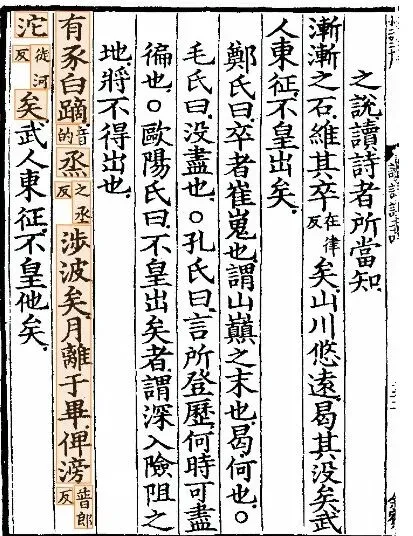 之說讀詩者所當知
漸漸之石維其卒在律反矣山川悠遠曷其没矣武
人東征不皇出矣
鄭氏曰卒者崔嵬也謂山巔之末也曷何也○
毛氏曰没盡也○孔氏曰言所登歷何時可盡
徧也○歐陽氏曰不皇出矣者謂深入險阻之
地將不得出也
有豕白蹢音的烝之丞反涉波矣月離于畢俾滂普郎反
沱徒河反矣武人東征不皇他矣